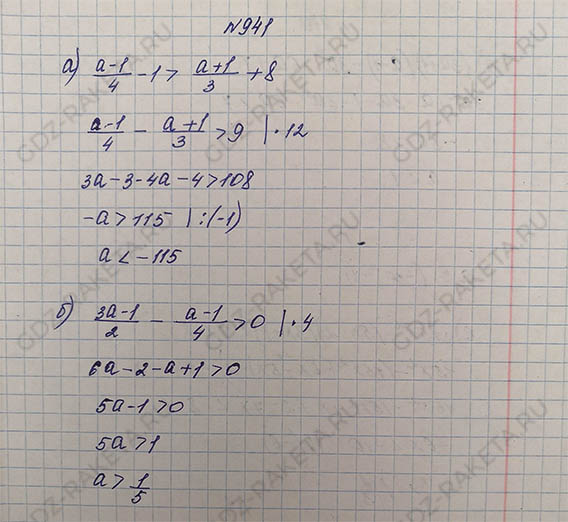 №941
а) (a-1)/4 - 1 > (a+1)/3 + 8
(a-1)/4 - (a+1)/3 > 9 | · 12
3a-3-4a-4>108
-a > 115 | :(-1)
a < -115
б) (3a-1)/2 - (a-1)/4 > 0 | · 4
6a-2-a+1>0
5a-1>0
5a>1
a > 1/5
GDZ-RAKETA.RU
GDZ-RAKETA.RU
GDZ-RAKETA.RU
GDZ-RAKETA.RU
GDZ-RAKETA.RU
GDZ-RAKETA.RU